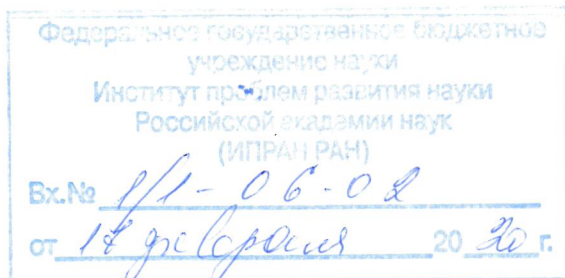 Федеральное государственное бюджетное
учреждение науки
Институт проблем развития науки
Российской академии наук
(ИПРАН РАН)
Вх.№ 1/1-06-02
от 17 февраля 2020 г.